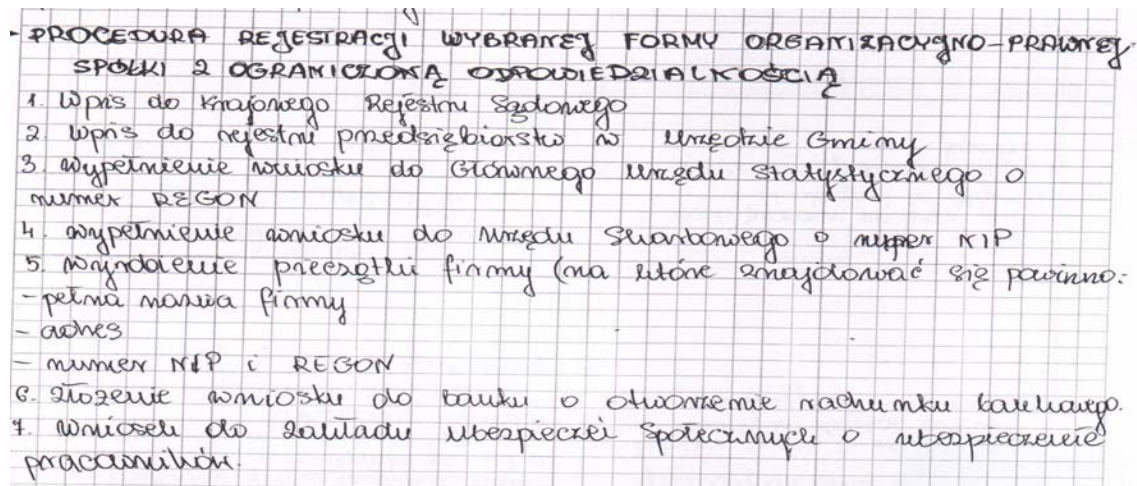 - PROCEDURA REJESTRACJI WYBRANEJ FORMY ORGANIZACYJNO-PRAWNEJ-
SPÓŁKI Z OGRANICZONĄ ODPOWIEDZIALNOŚCIĄ
1. Wpis do Krajowego Rejestru Sądowego
2. Wpis do rejestru przedsiębiorstw w Urzędzie Gminy
3. wypełnienie wniosku do Głównego Urzędu Statystycznego o
numer REGON
4. wypełnienie wniosku do Urzędu Skarbowego o numer NIP
5. wyrobienie pieczątki firmy (na której znajdować się powinno:
- pełna nazwa firmy
- adres
- numer NIP i REGON
6. złożenie wniosku do banku o otworzenie rachunku bankowego.
7. wniosek do Zakładu Ubezpieczeń Społecznych o ubezpieczenie
pracowników.